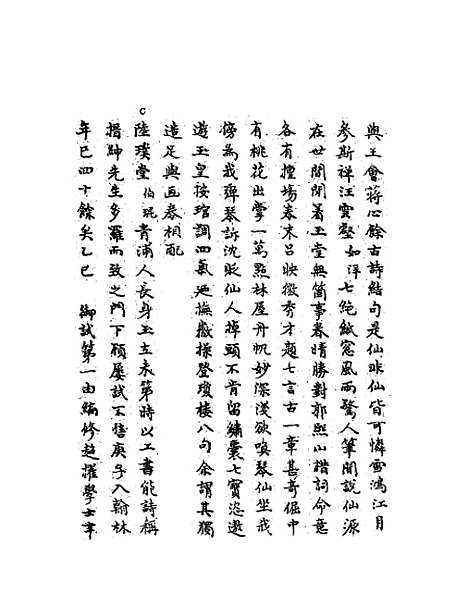 與王會蔣心餘古詩結句是仙非仙皆可憐雪鴻江月
參斯禪汪雲壑如洋七絕紙窗風雨驚人筆聞說仙源
在世間閒著玉堂無箇事春晴勝對郭熙山措詞命意
各有擅場卷末呂映微秀才題七言古一章甚奇倔中
有桃花出掌一萬點林屋舟帆妙深淺欲喚琴仙坐我
傍為我彈琴訴沈眇仙人掉頭不肯留繡囊七寶恣遨
遊玉皇按琯調四氣更撫徽操登瓊樓八句余謂其獨
造足與画卷相配
陸璞堂伯琨青浦人長身玉立未第時以工書能詩稱
搢紳先生多羅而致之門下顧屢試不售庚子入翰林
年已四十餘矣乙巳 御試第一由編修超擢學士辛